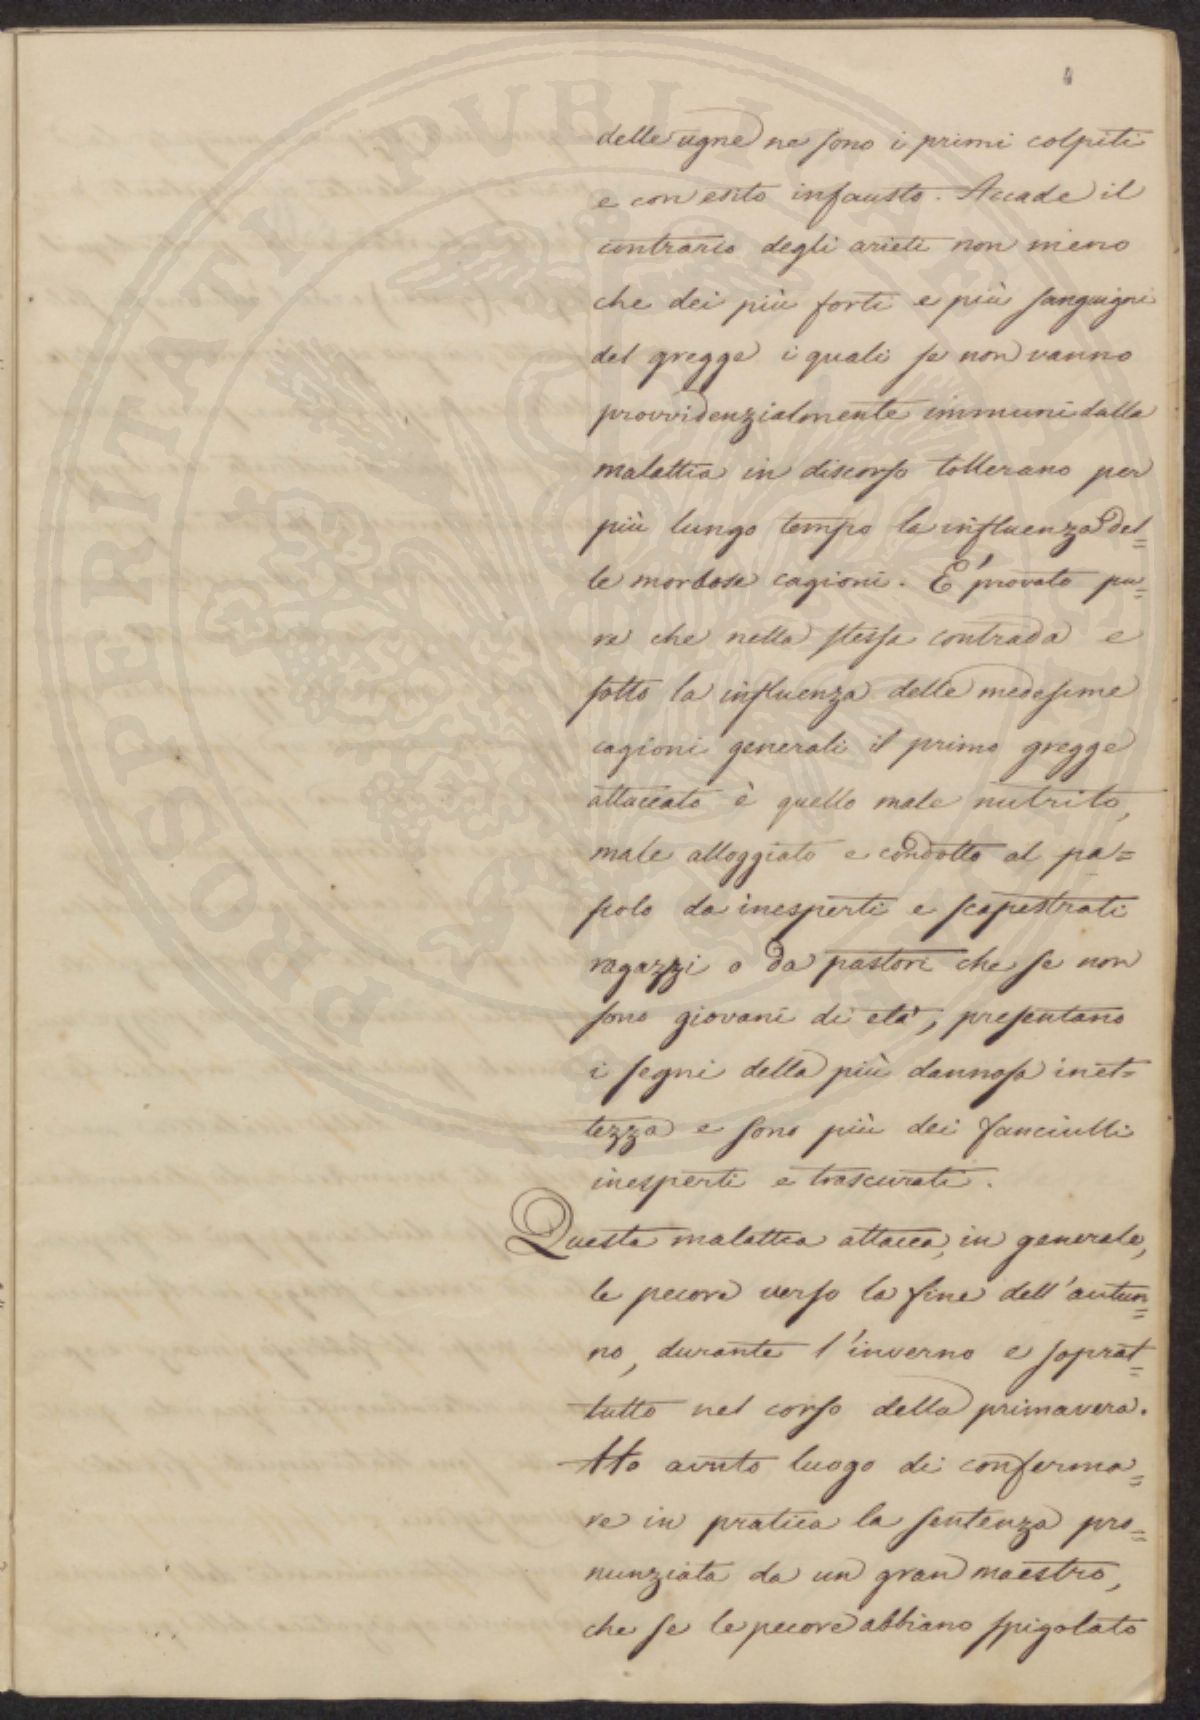 4
delle ugne ne sono i primi colpiti
e con esito infausto. Accade il
contrario degli arieti non meno
che dei più forti e più sanguigni
del gregge i quali se non vanno
provvidenzialmente immuni dalla
malattia in discorso tollerano per
più lungo tempo la influenza del=
le morbose cagioni. E' provato pu=
re che nella stessa contrada e
sotto la influenza delle medesime
cagioni generali il primo gregge
attaccato è quello male nutrito,
male alloggiato e condotto al pa=
scolo da inesperti e scapestrati
ragazzi o da pastori che se non
sono giovani di età, presentano
i segni della più dannosa inet=
tezza e sono più dei fanciulli
inesperti e trascurati.
Questa malattia attacca, in generale,
le pecore verso la fine dell'autun=
no, durante l'inverno e soprat=
tutto nel corso della primavera.
Ho avuto luogo di conferma=
re in pratica la sentenza pro=
nunziata da un gran maestro,
che se le pecore abbiano spigolato
PROSPERITATI PUBLICAE